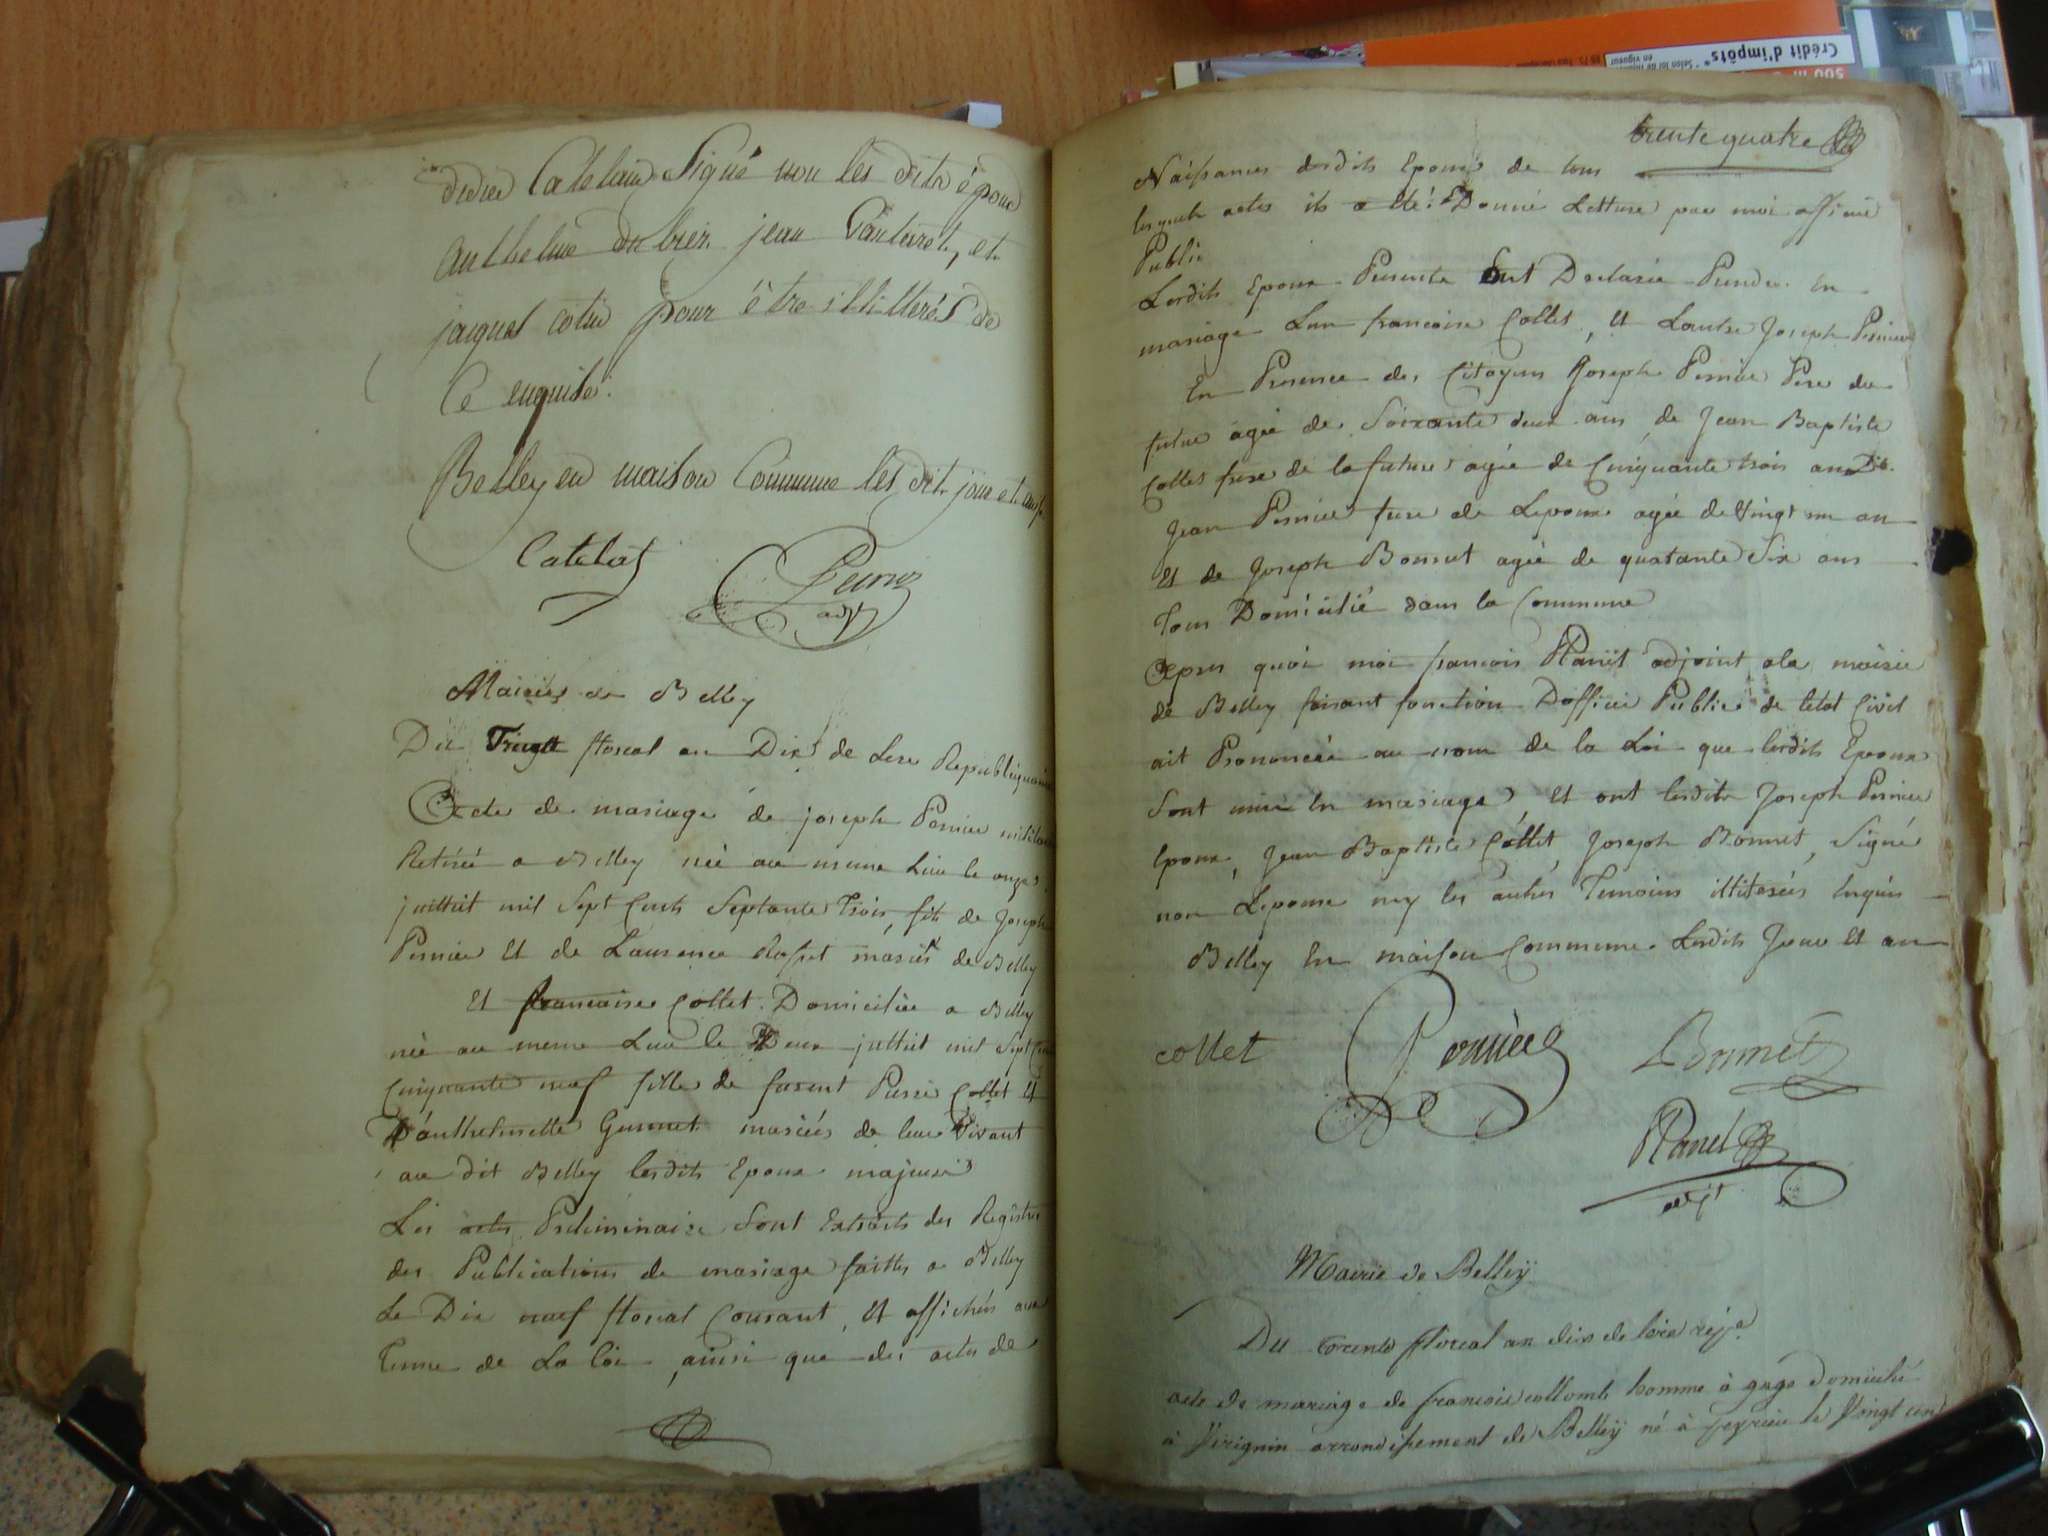 didier Catelain Signé non les dits époux
anthelme dubier jean et
jacques cotin pour être illitterés de
ce enquisé.
Belley en maison Commune les dits jour et an
Catelat
adjt
Mairie de Belley
Du Trente floreal an Dix de Lere Republiquaine
Acte de mariage de joseph Pernier militaire
Retirée a Belley née au meme Lieu le onze
juillet mil Sept Cents Septante Trois, fils de Joseph
Pernier Et de Laurence Rasset mariés de Belley
Et francoise Collet Domiciliée a Belley
née au meme Lieu le Deux juillet mil Sept Cent
Cinquante neuf fille de forent Pierre Collet Et
D'anthelmette Gunnet mariés de leur Vivant
au dit Belley lesdits Epoux majeurs
Les actes Preliminaire Sont Extraits des Registres
des Publications de mariage faittes a Belley
Le Dix neuf floreal Courant, Et affichés aux
Terme de La loi, ainsi que des actes de
trente quatre
Naissances desdits Epoux de tous
lesquels actes il a été Donné Letture par moi officié
Public
Lesdits Epoux Presents Ont Declarée Prendre En
mariage Lun francoise Collet, Et Lautre Joseph Pernier
En Presence des Citoyens Joseph Pernier Pere du
futur agée de Soixante deux ans, de Jean Baptiste
Collet frere de la future agée de Cinquante trois ans De
Jean Pernier frere de Lepoux agée de Vingt un an
Et de Joseph Bonnet agée de quarante Six ans
Tous Domicilié dans la Commune
Apres quoi moi francois Ranet adjoint a la mairie
de Belley faisant fonction Dofficié Public de letat Civil
ait Prononcée au nom de la Loi que lesdits Epoux
Sont unis En mariage Et ont lesdits Joseph Pernier
Epoux, Jean Baptiste Collet Joseph Bonnet, Signé
non Lepouse ny les autres Temoins illiterés Enquis
Belley En maison Commune Lesdits Jour Et an
collet Pernier Bonnet
Ranet
adjt
Mairie de Belley
Du trente floreal an dix de lere rep.e
acte de mariage de francois collomb homme à gage domicilié
à Virignin arrondissement de Belley né à peyrieu le Vingt cinq
Crédit d'impôts*
* Selon loi de
en vigueur